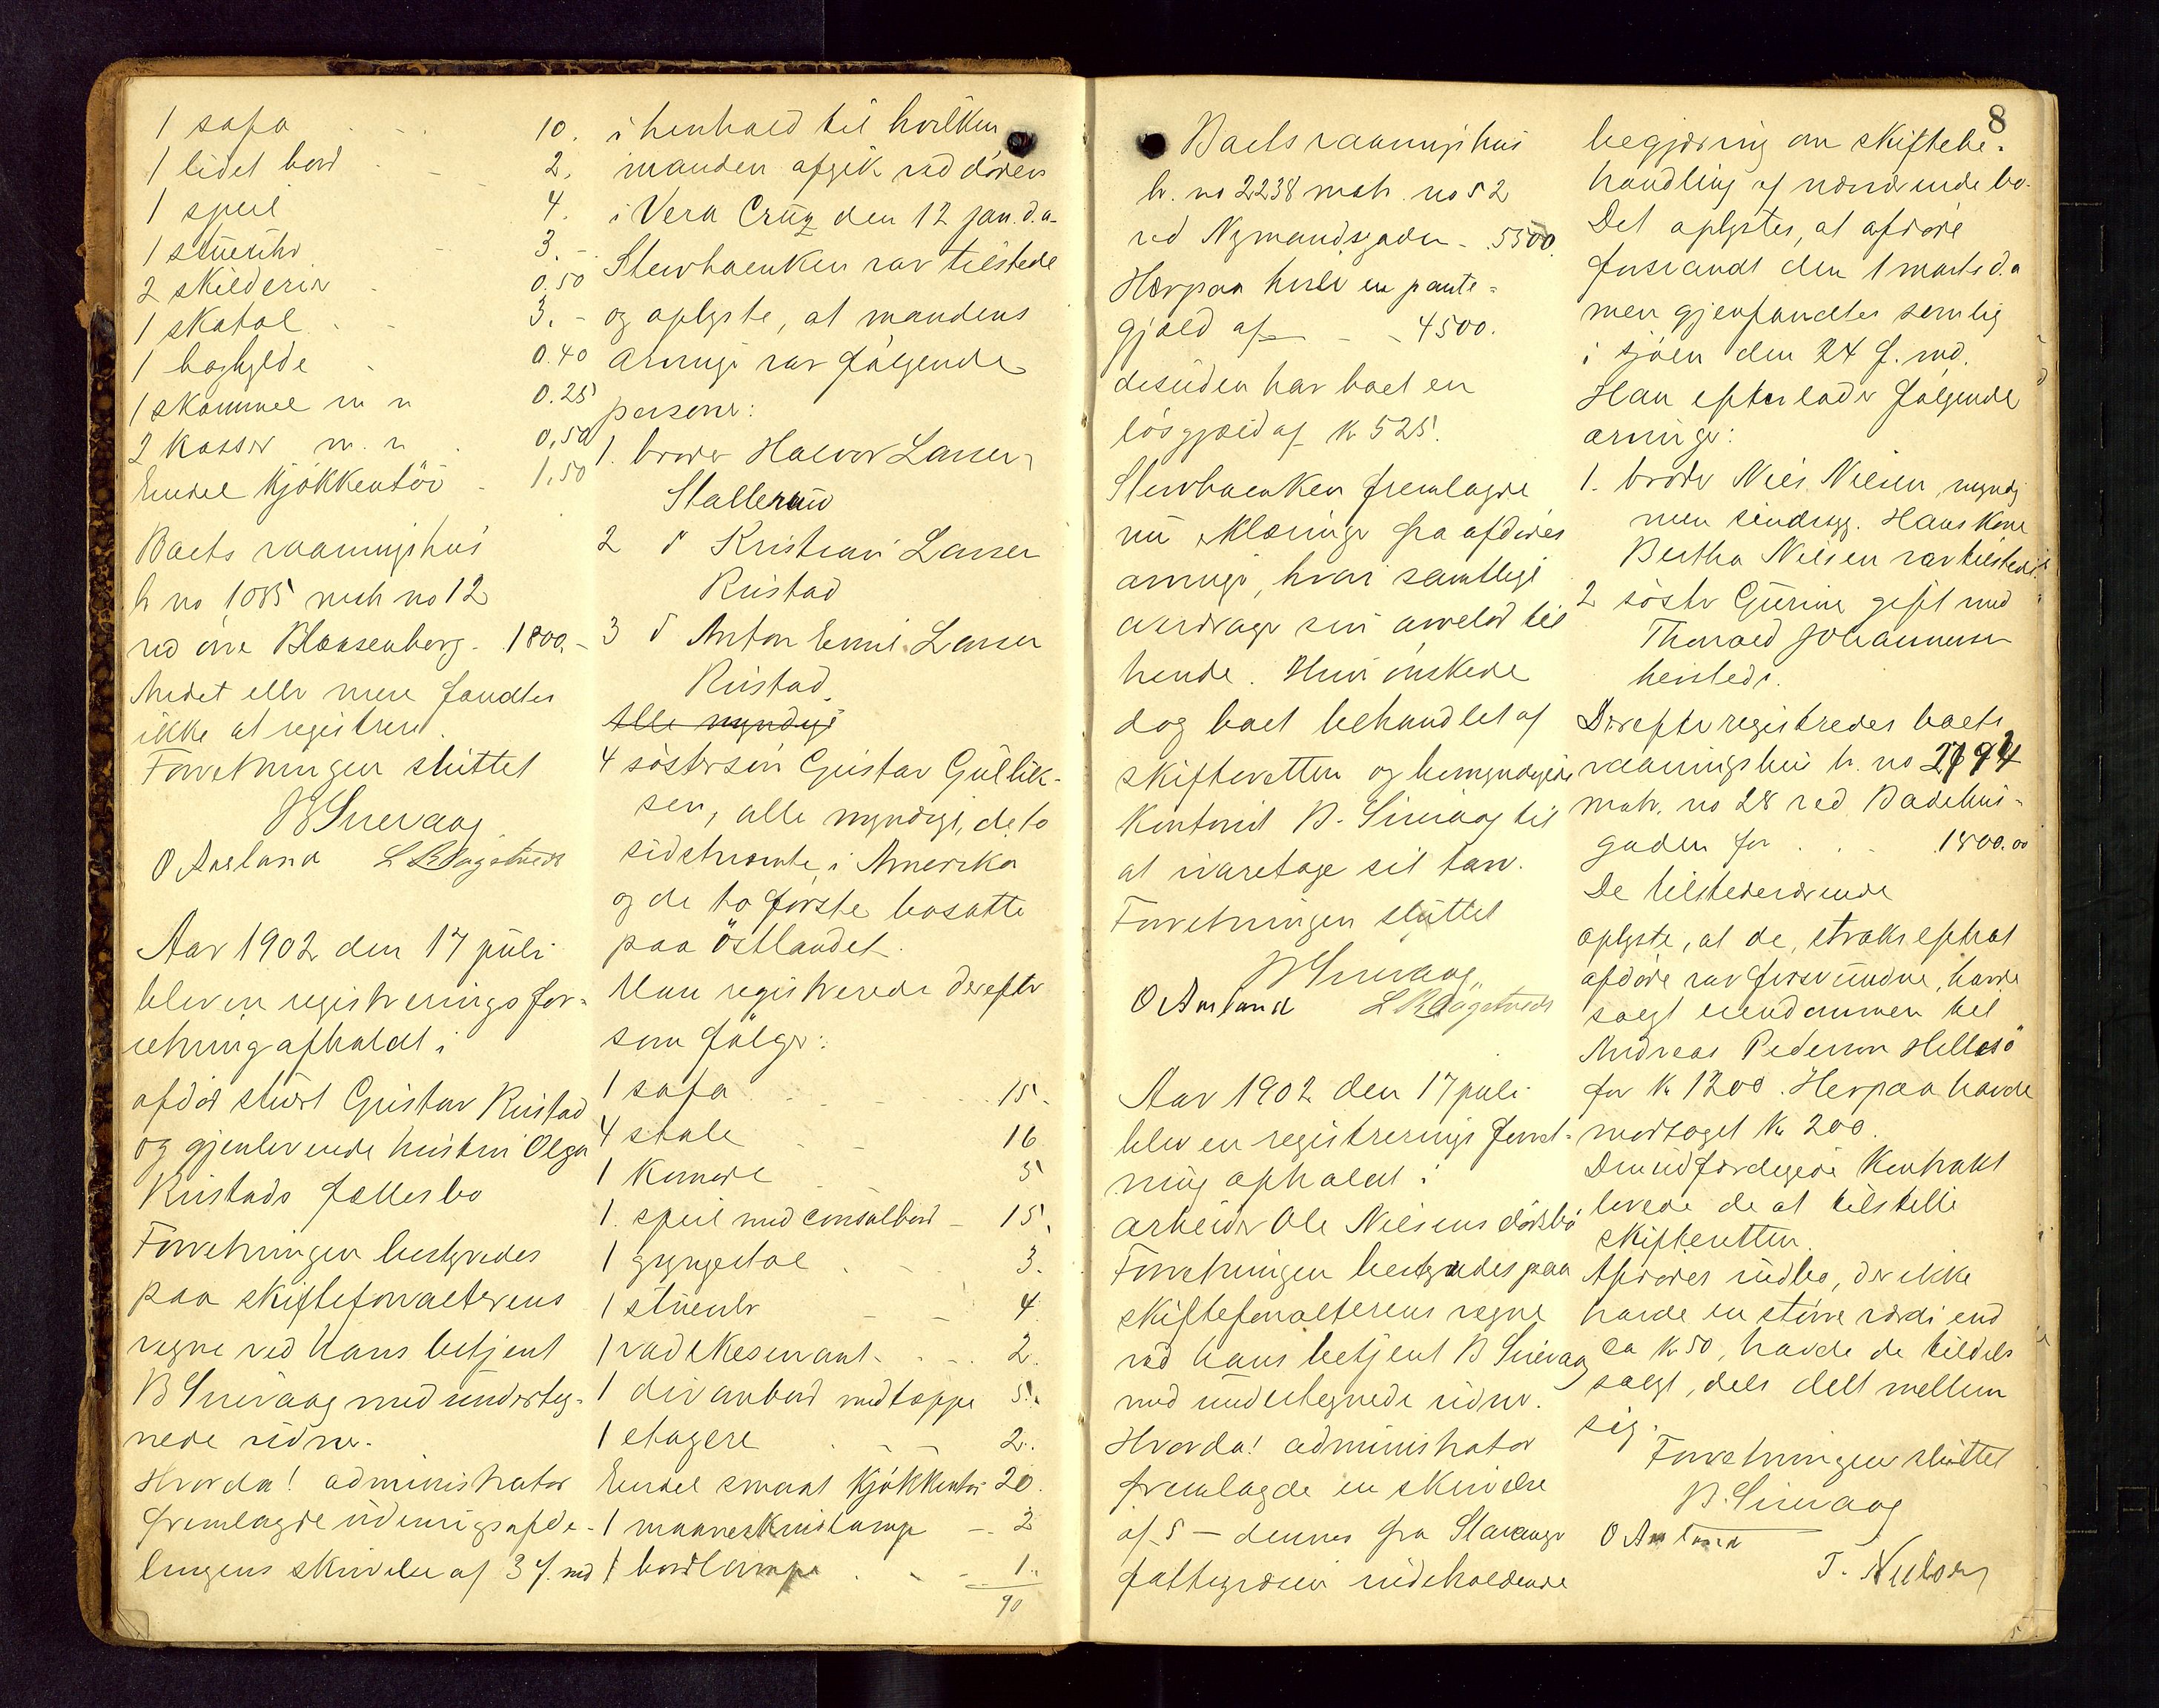 1 sofa . - . 10.
1 lidet bord - - 2.
1 speil 4.
1 stueuhr - 3. -
2 skilderier - 0.50
1 skatol . - 3. -
1 boghylde - 0.40
1 skammel m m 0.25
2 kasser m. m . 0,50
Endel kjøkkentöi - 1,50
Boets vaaningshus
br no 1085 matr no 12
ved övre Blaasenborg - . 1800. -
Andet eller mere fandtes
ikke at registrere.
Forretningen sluttet
B Snevaag
O Aarland L B Dagstveds
Aar 1902 den 17 juli
blev en registreringsfor-
retning afholdt i
afdöd stuert Gustav Rustad
og gjenlevende hustru Olga
Rustads fællesbo
Forretningen bestyredes
paa skifteforvalterens
vegne ved hans betjent
B Snevaag med underteg-
nede vidner.
Hvorda! administrator
fremlagde udenrigsafde-
lingens skrivelse af 3 f. md
i henhold til hvilken
manden afgik ved døden
i Vera Cruz den 12 jan. d.a.
Sterboenken var tilstede
og oplyste, at mandens
arvinger var følgende
personer:
1. broder Halvor Larsen
Stallerud
2 d Kristian Larsen
Rustad
3 d Anton Emil Larsen
Rustad.
Alle myndige
4 søstersön Gustav Gullik-
sen, alle myndige, de to
sidstnævnte i Amerika
og de to første bosatte
paa Östlandet.
Man registrerede derefter
som følger:
1 sofa . . - . 15.
4 stole - - 16
1 komode . - 5
1. speil med consolbord - 15.
1 gyngestol . - . 3.
1 stueuhr - - 4.
1 vadskeservant. . - . 2.
1 divanbord med tæppe 5.
1 etagere . - - 2.
Endel smaat kjøkkentöi 20.
1 maaneskinslampe - - 2
1 bordlampe . - - 1.
90
8
Boets vaaningshus
br. no 2238 matr. no 52
ved Nymandsgaden - . 5500.
Herpaa hviler en pante-
gjæld af - - 4500.
desuden har boet en
løsgjæld af kr 525.
Sterboenken fremlagde
nu erklæringer fra afdødes
arvinger, hvori samtlige
overdrager sin arvelod til
hende. Hun önskede
dog boet behandlet af
skifteretten og bemyndigede
kontorist B. Snevaag til
at ivaretage sit tarv.
Forretningen sluttet
B Snevaag
O Aarland L B Dagstveds
Aar 1902 den 17 juli
blev en registrerings forret-
ning afholdt i
arbeider Ole Nielsens dødsbo
Forretningen bestyredes paa
skifteforvalterens vegne
ved hans betjent B Snevaag
med undertegnede vidner.
Hvorda! administrator
fremlagde en skrivelse
af 5 - dennes fra Stavanger
fattigvæsen indeholdende
begjæring om skiftebe-
handling af nærværende bo.
Det oplystes, at afdøde
forsvandt den 1 marts d.a
men gjenfandtes som lig
i sjøen den 24 f. md.
Han efterlader følgende
arvinger:
1. broder Niels Nielsen, myndig
men sindssyg. Hans kone
Bertha Nielsen var tilstede.
2 søster Gurine gift med
Thorvald Johannessen
hersteds.
Derefter registredes boets
vaaningshus br. no 2794
matr. no 28 ved Badehus-
gaden for . . - . 1800.00
De tilstedeværende
oplyste, at de, straks efter at
afdøde var forsvunden, havde
solgt eiendommen til
Andreas Pederson Hellesö
for kr 1200. Herpaa havde
modtaget kr 200.
Den udfærdigede kontrakt
lovede de at tilstille
skifteretten.
Afdødes indbo, der ikke
havde en større værdi end
ca kr 50, havde de tildels
solgt, dels delt mellem
sig.
Forretningen sluttet
B. Snevaag
O Aarland
T. Nielsen